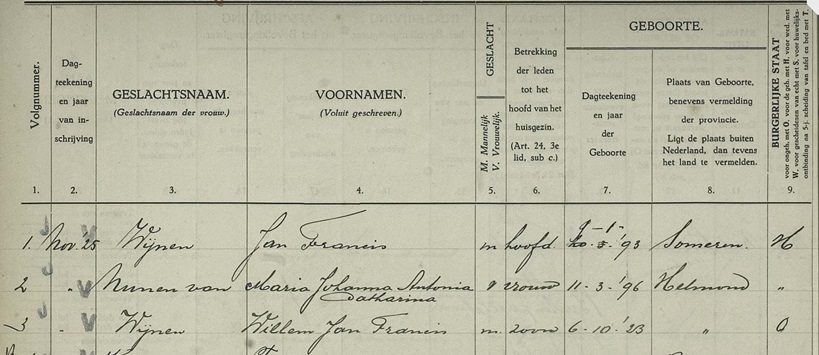 Volgnummer.
Dag-
teekening
en jaar
van in-
schrijving
GESLACHTSNAAM.
(Geslachtsnaam der vrouw.)
VOORNAMEN.
(Voluit geschreven.)
GESLACHT
M. Mannelijk
V. Vrouwelijk.
Betrekking
der leden
tot het
hoofd van het
huisgezin.
(Art. 24, 3e
lid, sub c.)
GEBOORTE.
Dagteekening
en jaar
der
Geboorte
Plaats van Geboorte,
benevens vermelding
der provincie.
Ligt de plaats buiten
Nederland, dan tevens
het land te vermelden.
BURGERLIJKE STAAT
voor ongeh. met O. voor de geh. met H. voor wed. met
W. voor gescheidenen van echt met S. voor huwelijks-
ontbinding na 5-j. scheiding van tafel en bed met T.
1. 2. 3. 4. 5. 6. 7. 8. 9.
1. Nov. '25 Wijnen Jan Francis m hoofd '93 Someren. H
2 " Nunen van Maria Johanna Antonia v vrouw 11-3-'96 Helmond "
Catharina
3 " Wijnen Willem Jan Francis m. zoon 6-10-'23 " O